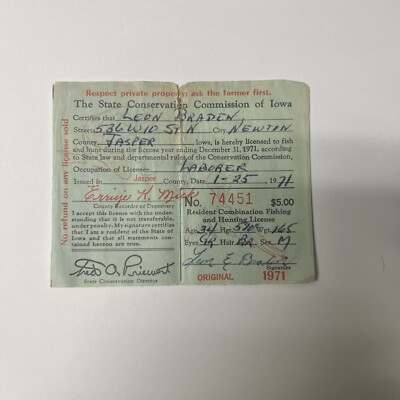 Respect private property: ask the farmer first.
The State Conservation Commission of Iowa
Certifies that LEON BRADEN,
Street 536 W 10 ST N City NEWTON
County JASPER Iowa, is hereby licensed to fish
and hunt during the license year ending December 31, 1971, according to
State law and departmental rules of the Conservation Commission,
Occupation of Licensee LABORER
Issued in Jasper County, Date 1-25 1971
No refund on any license sold
County Recorder or Depositary
I accept this license with the under-
standing that it is not transferable,
under penalty. My signature certifies
that I am a resident of the State of
Iowa and that all statements contained
hereon are true.
State Conservation Director
No. 74451 $5.00
Resident Combination Fishing
and Hunting License
Age 34 Hgt. 5'10" Wgt. 165
Eyes GR Hair BR Sex M
Leon E Braden
Signature
ORIGINAL 1971